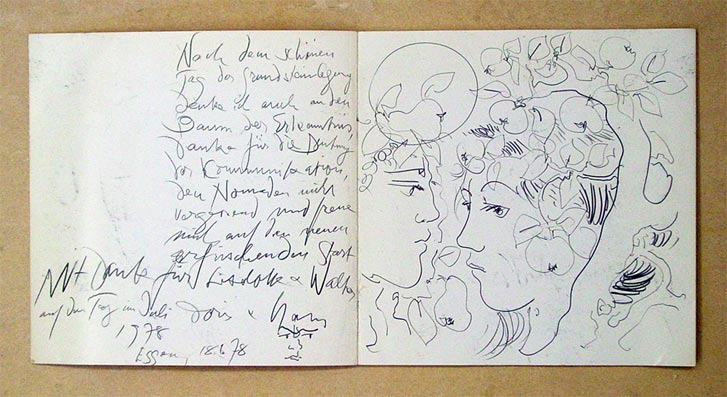 Nach dem schönen
Tag der Grundsteinlegung
denke ich auch an den
Baum der Erkenntnis,
danke für die
der Kommunikation,
den Nomaden nicht
vergessend und freue
mich auf den neuen
erfrischenden Start
Mit Dank für Liselotte + Walter
auf den Tag im Juli Doris + Hans
1978
Essen, 18.6.78